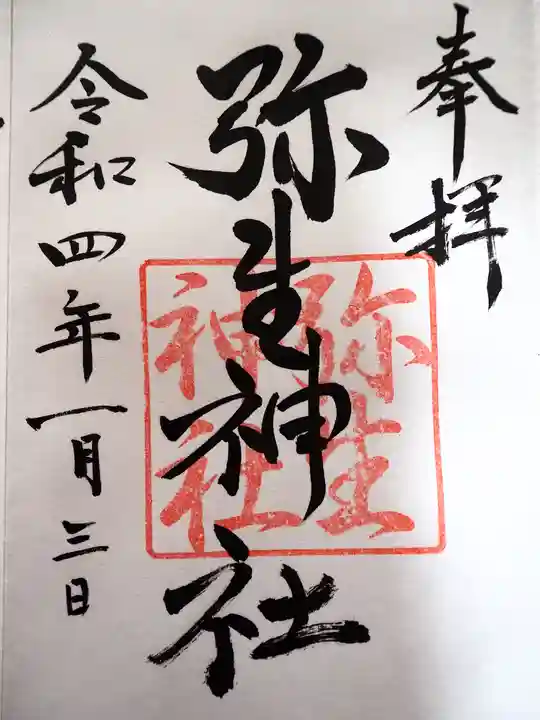 奉拝
弥生神社
弥生神社
令和四年一月三日